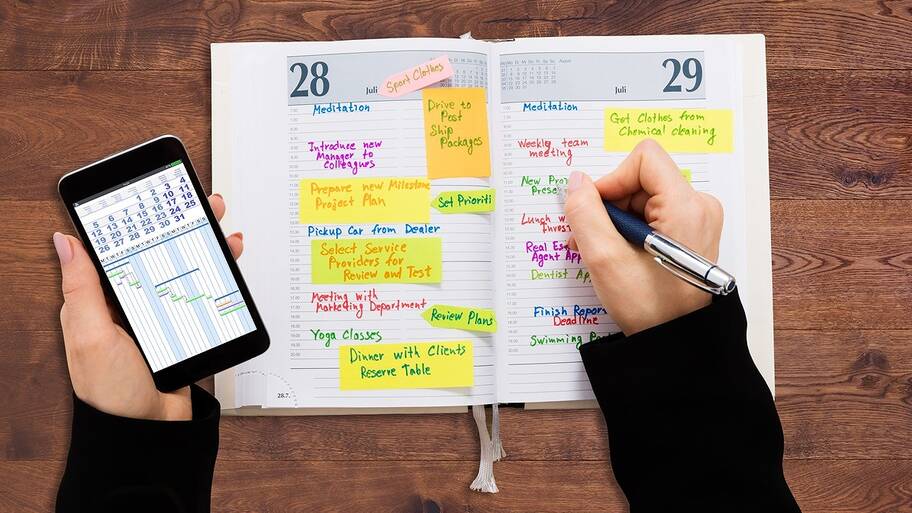 28
Juli
Sport Clothes
Meditation
Drive to
Post
Ship
Packages
Introduce new
Manager to
Colleagues
Prepare new Milestone
Project Plan
Set Prioriti
Pickup Car from Dealer
Select Service
Providers for
Review and Test
Meeting with
Marketing Department
Review Plans
Yoga Classes
Dinner with Clients
Reserve Table
28.7.
Juli
29
Meditation
Got Clothes from
Chemical cleaning
Weekly team
meeting
New Pro
Presen
Lunch w
Inves
Real Es
Agent App
Dentist App
Finish Repor
Deadline
Swimming
1 2 3 4
5 6 7 8 9 10 11
12 13 14 15 16 17 18
19 20 21 22 23 24 25
26 27 28 29 30 31